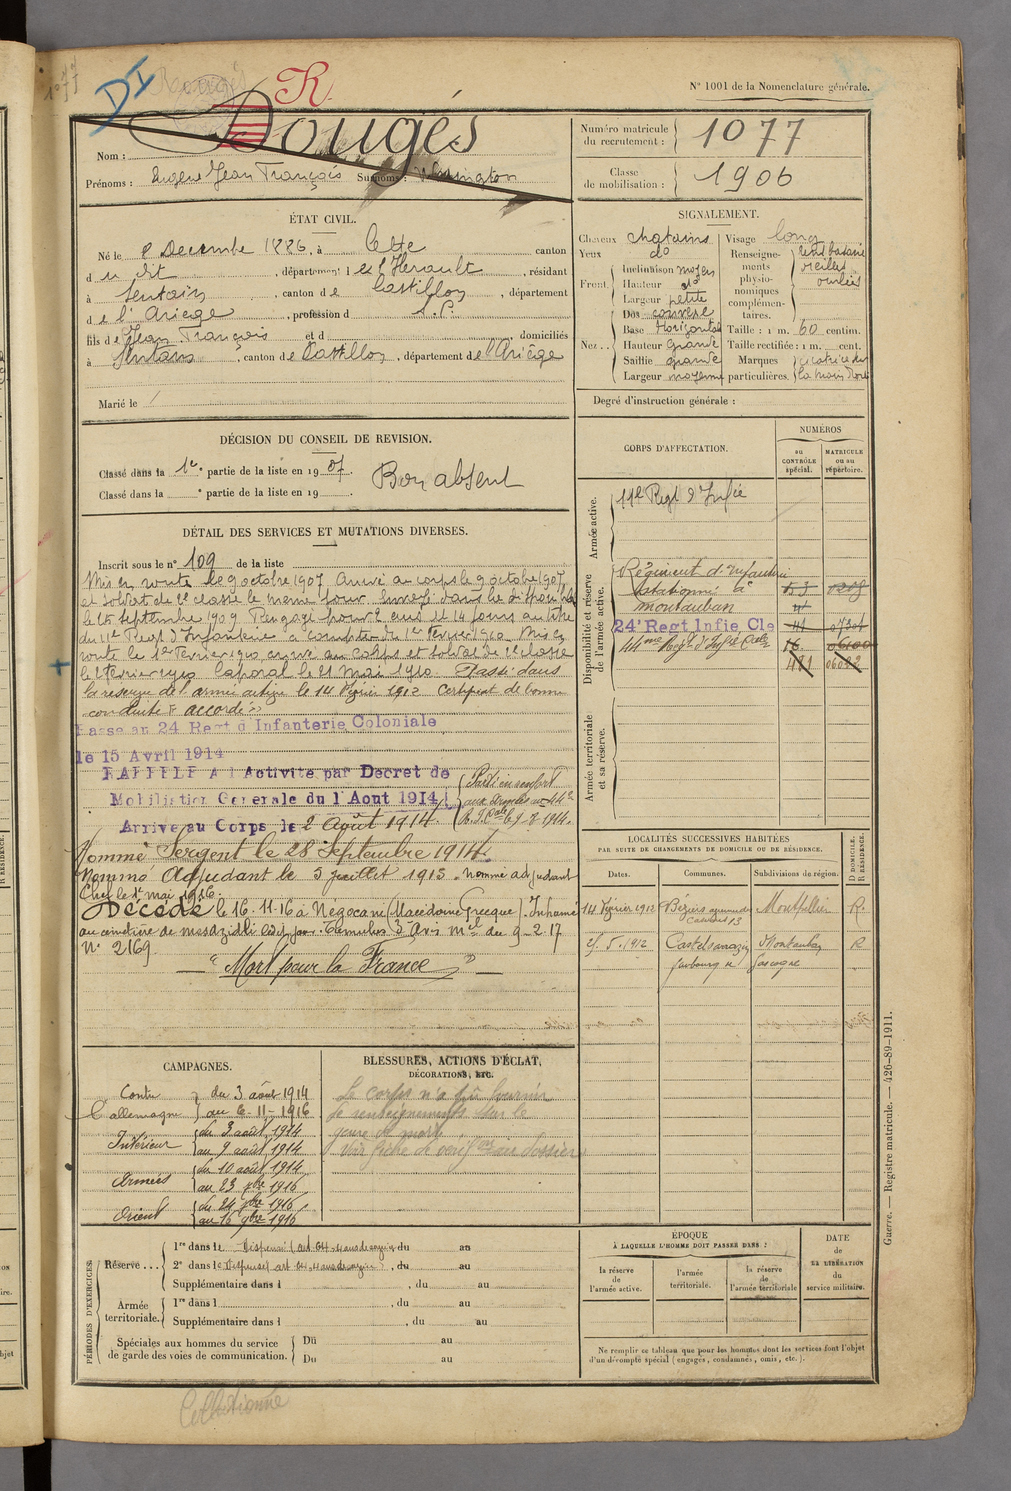 1077
DI
R.
N° 1001 de la Nomenclature générale.
Nom : Rougés
Prénoms : Eugène Jean François Surnoms :
Numéro matricule du recrutement : 1077
Classe de mobilisation : 1906
ÉTAT CIVIL.
Né le 8 Décembre 1886, à Cette canton
d u dit , département de l'Hérault , résidant
à Sentein , canton de Castillon , département
de l'Ariège , profession d S. P.
fils de Jean François et d domiciliés
à Sentein , canton de Castillon , département de l'Ariège
Marié le
SIGNALEMENT.
Cheveux chatains
Yeux do
Front Inclinaison moyen
Hauteur do
Largeur petite
Nez Dos convexe
Base Horizontal
Hauteur grande
Saillie grande
Largeur moyenne
Visage long
Renseignements physionomiques complémentaires. teint basané
oreilles
ourlées
Taille : 1 m. 60 centim.
Taille rectifiée : 1 m. cent.
Marques particulières. cicatrice sur
la main
Degré d'instruction générale :
DÉCISION DU CONSEIL DE REVISION.
Classé dans la 1e partie de la liste en 1907.
Classé dans la e partie de la liste en 19 .
Bon absent
DÉTAIL DES SERVICES ET MUTATIONS DIVERSES.
Inscrit sous le n° 109 de la liste
Mis en route le 9 octobre 1907 Arrivé au corps le 9 octobre 1907
et soldat de 2e classe le même jour. Envoyé dans la disponibilité
le 25 septembre 1909 Rengagé pour 2 ans et 14 jours au titre
du 11e Regt d'Infanterie à compter du 1er Fevrier 1910 Mis en
route le 1er Fevrier 1910 arrivé au corps et soldat de 2e classe
le 2 fevrier 1910 Caporal le 21 Mai 1910 Passé dans
la réserve de l'armée active le 14 Février 1912 Certificat de bonne
conduite « accordé »
Passe au 24 Regt d Infanterie Coloniale
le 15 Avril 1914
RAPPELE A l Activite par Decret de
Mobilisation Generale du 1 Aout 1914
Arrive au Corps le 2 Août 1914.
Parti en renfort
aux Armées au 44e
R. I. Cale le 9-8-1914.
Nommé Sergent le 28 Septembre 1914.
Nommé Adjudant le 5 juillet 1915. Nommé adjudant
Chef le 1er mai 1916.
Décédé le 16-11-16 à Negocani (Macédoine Grecque). Inhumé
au cimetière de Avis mel du 9-2-17
N° 2169
« Mort pour la France »
CORPS D'AFFECTATION.
NUMÉROS
au CONTRÔLE spécial.
MATRICULE ou au répertoire.
Armée active.
11e Regt d'Infie
Disponibilité et réserve de l'armée active.
Régiment d'Infanterie
stationné à
montauban
24e Regt Infie Cle
44me Régt d'Infie Cale
481
06082
Armée territoriale et sa réserve.
LOCALITÉS SUCCESSIVES HABITÉES
PAR SUITE DE CHANGEMENTS DE DOMICILE OU DE RÉSIDENCE.
Dates. Communes. Subdivisions de région. D DOMICILE. R RÉSIDENCE.
14 Février 1912 Béziers Montpellier R.
5. 1912 Castelsarrazin Montauban R
faubourg de Gascogne
CAMPAGNES.
Contre l'allemagne du 3 août 1914
au 6-11-1916
Intérieur du 3 août 1914
au 9 août 1914
Armées du 10 août 1914
au 23 9bre 1916
Orient du 24 9bre 1916
au 16 9bre 1916
BLESSURES, ACTIONS D'ÉCLAT,
DÉCORATIONS, ETC.
Le corps n'a pû fournir
de renseignements sur le
genre de mort
Voir fiche de au dossier
PÉRIODES D'EXERCICES.
Réserve... 1re dans le Dispensé , du au
2e dans le Dispensé , du au
Supplémentaire dans l , du au
Armée territoriale. 1re dans l , du au
Supplémentaire dans l , du au
Spéciales aux hommes du service de garde des voies de communication. Du au
Du au
ÉPOQUE
À LAQUELLE L'HOMME DOIT PASSER DANS :
la réserve de l'armée active.
l'armée territoriale.
la réserve de l'armée territoriale
DATE de LA LIBÉRATION du service militaire.
Ne remplir ce tableau que pour les hommes dont les services font l'objet
d'un décompte spécial (engagés, condamnés, omis, etc.).
Guerre. — Registre matricule. — 426-89-1911.
Collationné